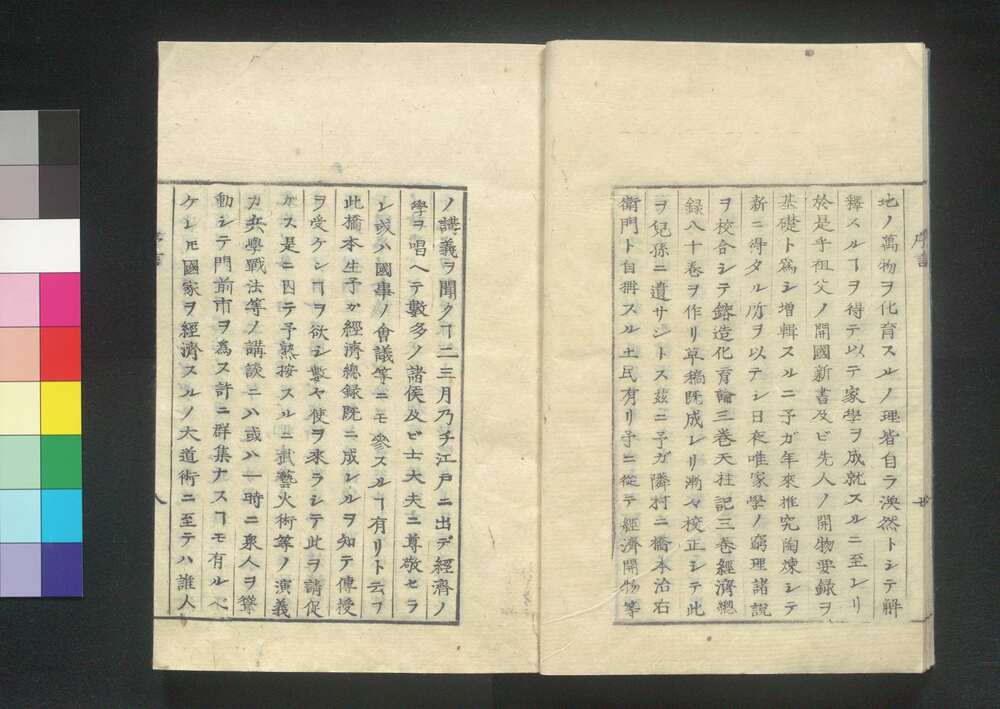 地ノ萬物ヲ化育スルノ理皆自ラ渙然トシテ解
釋スルヿヲ得テ以テ家學ヲ成就スルニ至レリ
於是乎祖父ノ開國新書及ビ先人ノ開物要録ヲ
基礎ト爲シ増輯スルニ予ガ年來推究陶煉シテ
新ニ得タル所ヲ以テシ日夜唯家學ノ窮理諸説
ヲ校合シテ鎔造化育論三巻天柱記三巻經濟總
録八十巻ヲ作リ草稿既成レリ漸々校正シテ此
ヲ兒孫ニ遺サントス茲ニ予ガ隣村ニ橋本治右
衛門ト自稱スル土民有リ予ニ從テ經濟開物等
ノ講義ヲ聞クヿ二三月乃チ江戸ニ出デ經濟ノ
學ヲ唱ヘテ數多ノ諸侯及ビ士大夫ニ尊敬セラ
レ或ハ國事ノ會議等ニモ參スルヿ有リト云フ
此橋本生予ガ經濟總録既ニ成レルヲ知テ傳授
ヲ受ケンヿヲ欲シ數々使ヲ來ラシテ此ヲ請促
カス是ニ因テ予熟按スルニ武藝火術等ノ演義
カ兵學戰法等ノ講談ニハ或ハ一時ニ衆人ヲ聳
動シテ門前市ヲ爲ス許ニ群集ナスヿモ有ルベ
ケレモ國家ヲ經濟スルノ大道術ニ至テハ誰人
序言
八